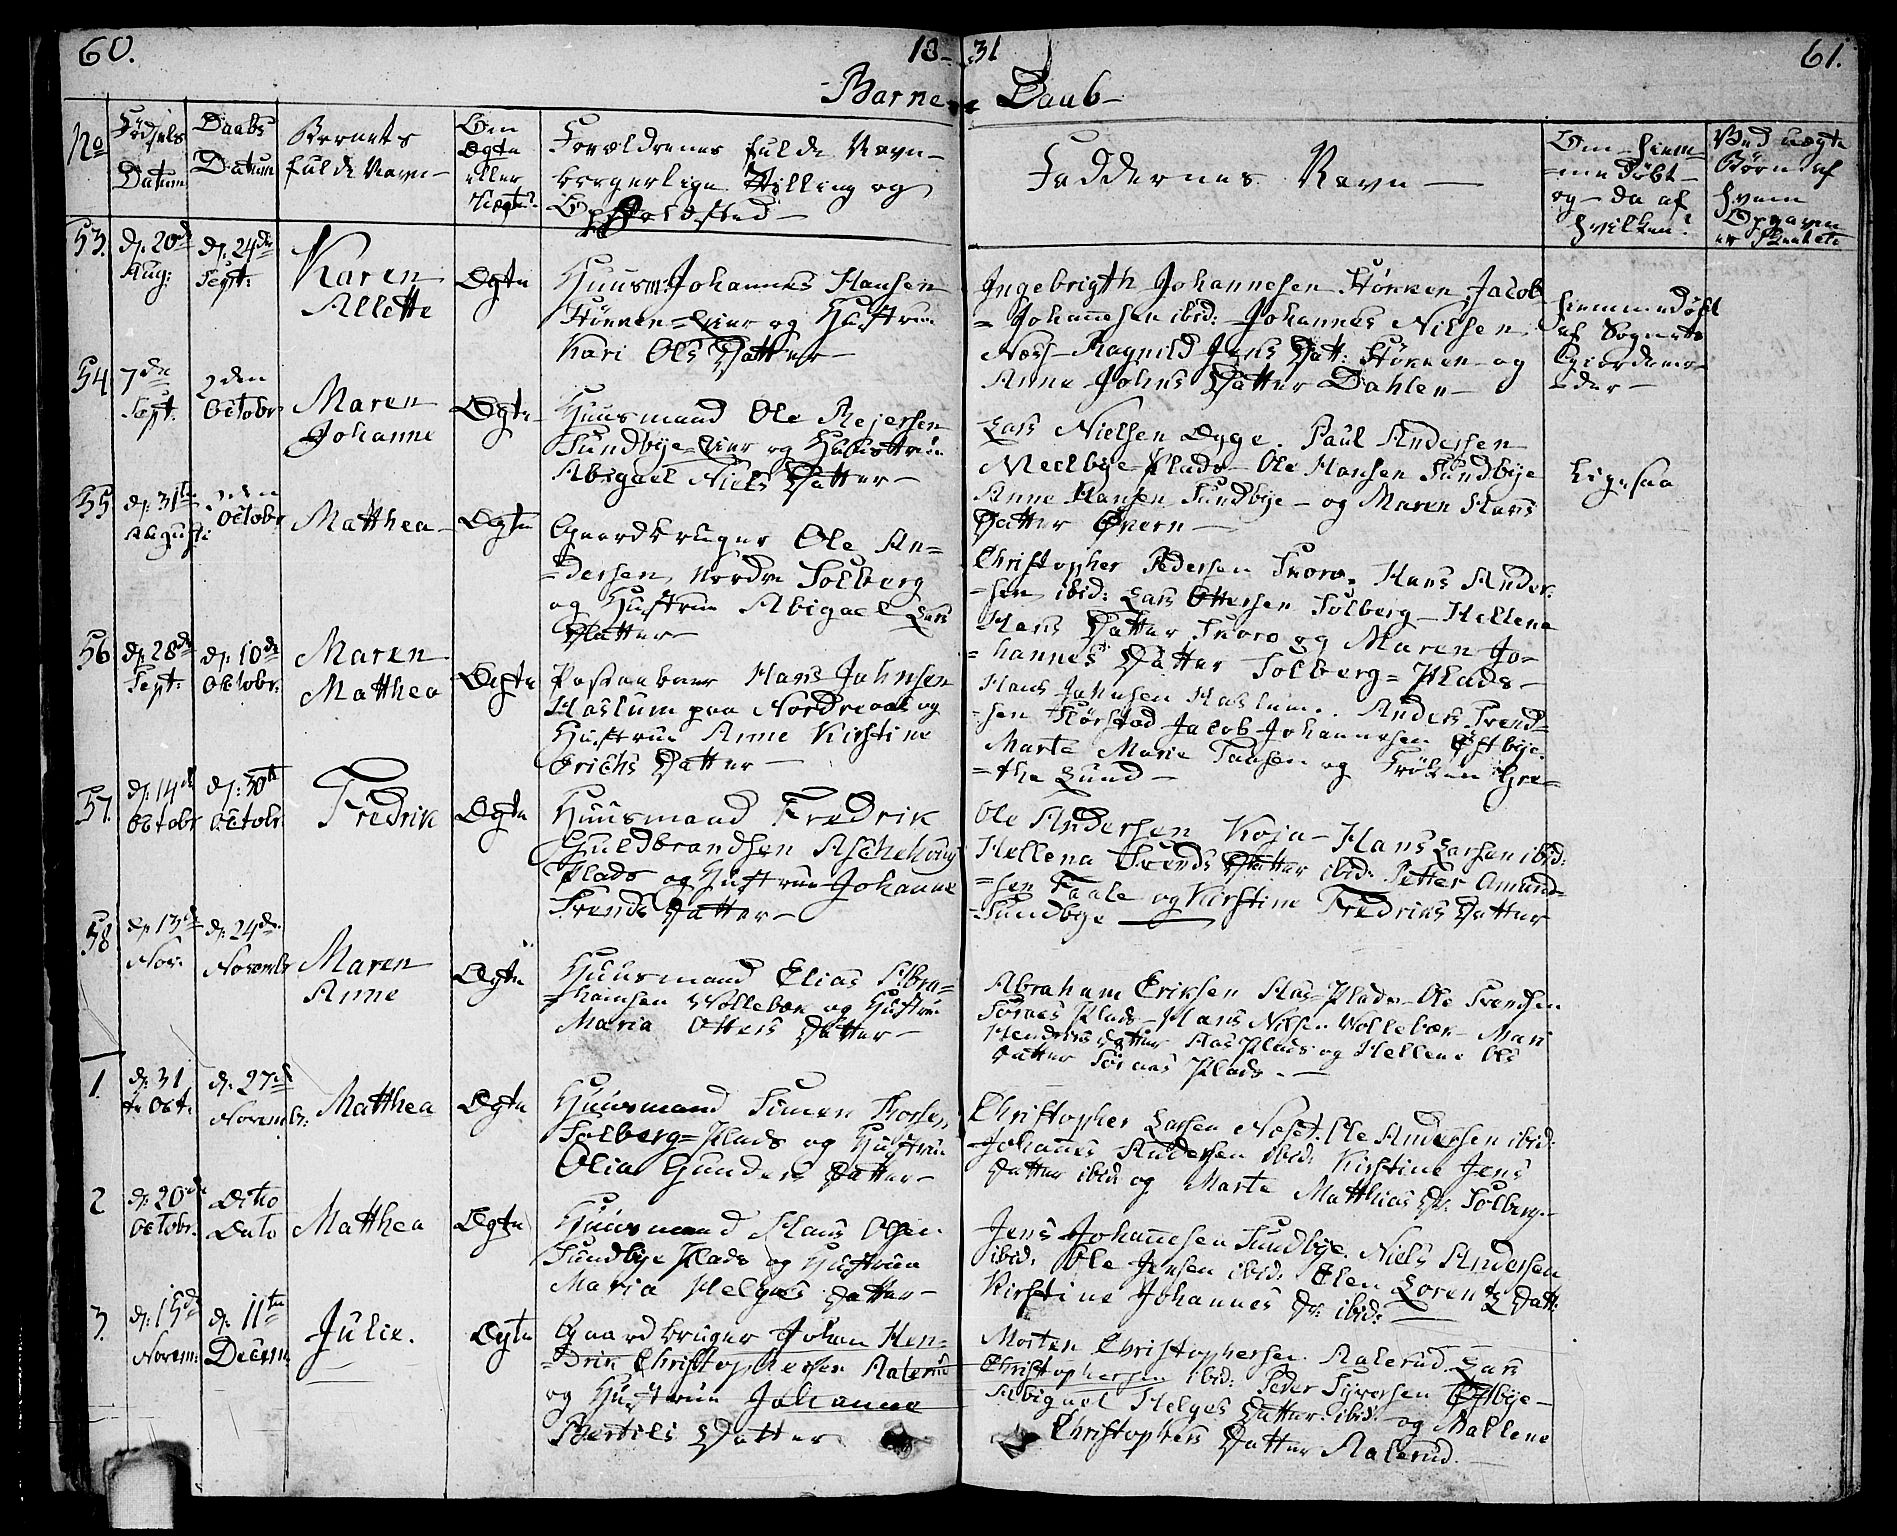 60. 18-31 61.
Barne- Daab-
No
Fødsels Datum
Daabs Datum
Barnets fulde Navn-
Om Ægte eller Uægte?
Forældrenes fulde Navn-
borgerlige Stilling og
Opholdsted-
Faddernes Navn-
Om hiem-
me døbt
og- da af
hvilken?
Ved uægte
Børn af
hvem
Opgaven
er skeet
53.
d. 20de
Aug:
d. 24de
Sept:
Karen
Allette
Ægte
Huusm: Johannes Hansen
Stökken-Eier og Hustrue
Kari Ols Datter-
Ingebrigth Johannesen Stökken, Jacob
Johannesen ibid: Johannes Nilsen
Næss- Ragnild Jens Datt: Stökken- og
Anne Johns Datter Dahlen-
hiemmedøbt
af Sognets
Giordemo-
der-
54.
7de
Sept:
2den
Octobr
Maren
Johanne
Ægte-
Huusmand Ole Rejersen
Sundbye-Eier og Hustrue
Abigael Niels Datter-
Lars Nielsen Dyge. Paul Andersen
Meelbye-Plads- Ole Hansen Sundbye
Anne Hansen Sundbye- og Maren Hans
Datter Övern-
Ligesaa
55
d. 31te
Augusti
2den
Octobr
Matthea-
Ægte
Gaardbruger Ole An-
dersen, Nordre Solberg
og Hustrue Abigael Lars
Datter-
Christopher Pedersen Froro. Hans Ander-
sen ibid: Lars Ottersen Solberg- Hellene
Hans Datter Froro og Maren Jo-
hannes Datter Solberg-Plads-
56
d. 28de
Sept:
d. 10de
Octobr:
Maren
Matthea
Ægte
Hans Johnsen
Haslum paa Nordre Aas og
Hustrue Anne Kirstine
Erichs Datter-
Hans Johnsen Haslum. Anders Svend-
sen Hörstad Jacob Johannesen Östbye.
Marte Marie Tansen og Fröken Gre-
the Lund-
57.
d. 14de
Octobr
d. 30te
Octobr.
Fredrik
Ægte
Huusmand Fredrik
Guldbrandsen Aschehoug
Plads og Hustrue Johanne
Svends Datter-
Ole Andersen Koja- Hans Larsen ibid:
Hellena Svends Datter ibid: Petter Amund-
sen Faale og Kirstine Fredriks Datter
Sundbye
58
d. 13de
Nov:
d. 24de
Novembr
Maren
Anne
Ægte
Huusmand Elias Abra-
hamsen Wollebæk og Hustrue
Maria Otters Datter-
Abraham Eriksen Aas-Plads- Ole Svendsen
Tornes Plads- Hans Nilsen Wollebæk- Mari
Hendrics Datter Aas Plads og Hellene Ols
Datter Tornes Plads.-
1.
d. 31
te Oct.
d. 27de
Novembr:
Matthea
Ægte
Huusmand Simen Thorsen
Solberg-Plads og Hustrue
Olia Gunders Datter-
Christopher Larsen Næset. Ole Andersen ibid:
Johannes Andersen ibid: Kirstine Jens
Datter ibid: og Marte Matthias Dr: Solberg.-
2
d. 20de
Octobr.
Ditto
Dato
Matthea
Ægte
Huusmand Hans Olsen
Sundbye Plads og Hustrue
Maria Helges Datter-
Jens Johannesen Sundbye. Niels Andersen
ibid: Ole Jensen ibid: Elen Lorentz Datt:
Kirstine Johannes Dr: ibid:
3.
d. 15de
Novem:
d. 11te
Decem
Julie.
Ægte
Gaardbruger Johan Hen-
drik Christophersen Aalerud
og Hustrue Johanne
Bertils Datter
Morten Christophersen Aalerud. Lars
Christophersen ibid: Peder Syversen Östbye-
Abigael Helges Datter ibid: og Mallene
Christophers Datter Aalerud.-